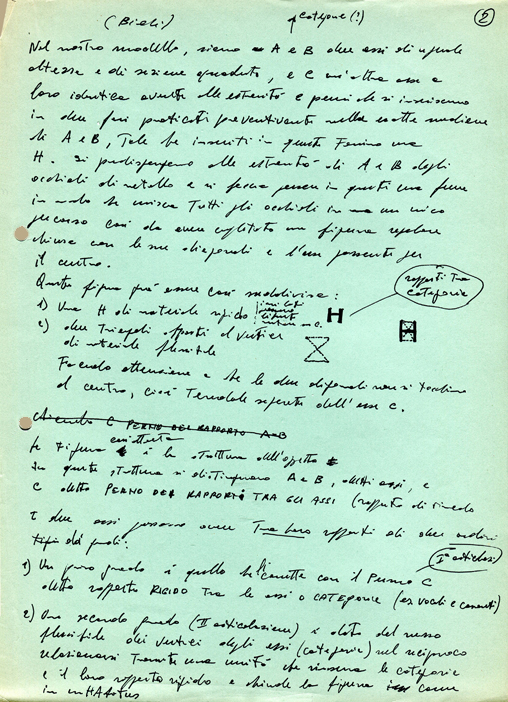 (Bieli) Categorie (!) 2
Nel nostro modello, siano A e B due assi di uguale
altezza e di sezione quadrata, e C un'altra asse a
loro identica avente alle estremità e perni che si inseriscono
in due fori praticati preventivamente nella esatta mediana
di A e B, Tale che inseriti in questi Formino una
H. Si predispongano alle estremità di A e B degli
occhielli di metallo e si faccia passare in questi una fune
in modo che unisca Tutti gli occhielli in un unico
percorso così da avere esplicitato una figura regolare
chiusa con le sue diagonali e l'asse passante per
il centro.
Questa figura può essere così suddivisa:
rapporti tra
categorie
1) Una H di materiale rigido
H
2) due Triangoli opposti al vertice
di materiale flessibile
Facendo attenzione a che le due diagonali non si tocchino
al centro, cioè Tenendole separate dall'asse C.
C PERNO DEL RAPPORTO A-B
la Figura costruita è la struttura dell'oggetto
In questa struttura si distinguono A e B, detti assi, e
C detto PERNO DEI RAPPORTI TRA GLI ASSI (rapporto di vincolo
I due assi possono avere Tra loro rapporti di due ordini
tipi di gradi:
Iª articolazi
1) Un primo grado è quello che connette con il Perno C
detto rapporto RIGIDO Tra le assi o CATEGORIE (es vocali e consonanti)
2) Un secondo grado (II articolazione) è dato dal nesso
flessibile dei vertici degli assi (categorie) nel reciproco
relazionarsi Tramite una unità che rinserra le categorie
e il loro rapporto rigido e chiude la figura come
in un